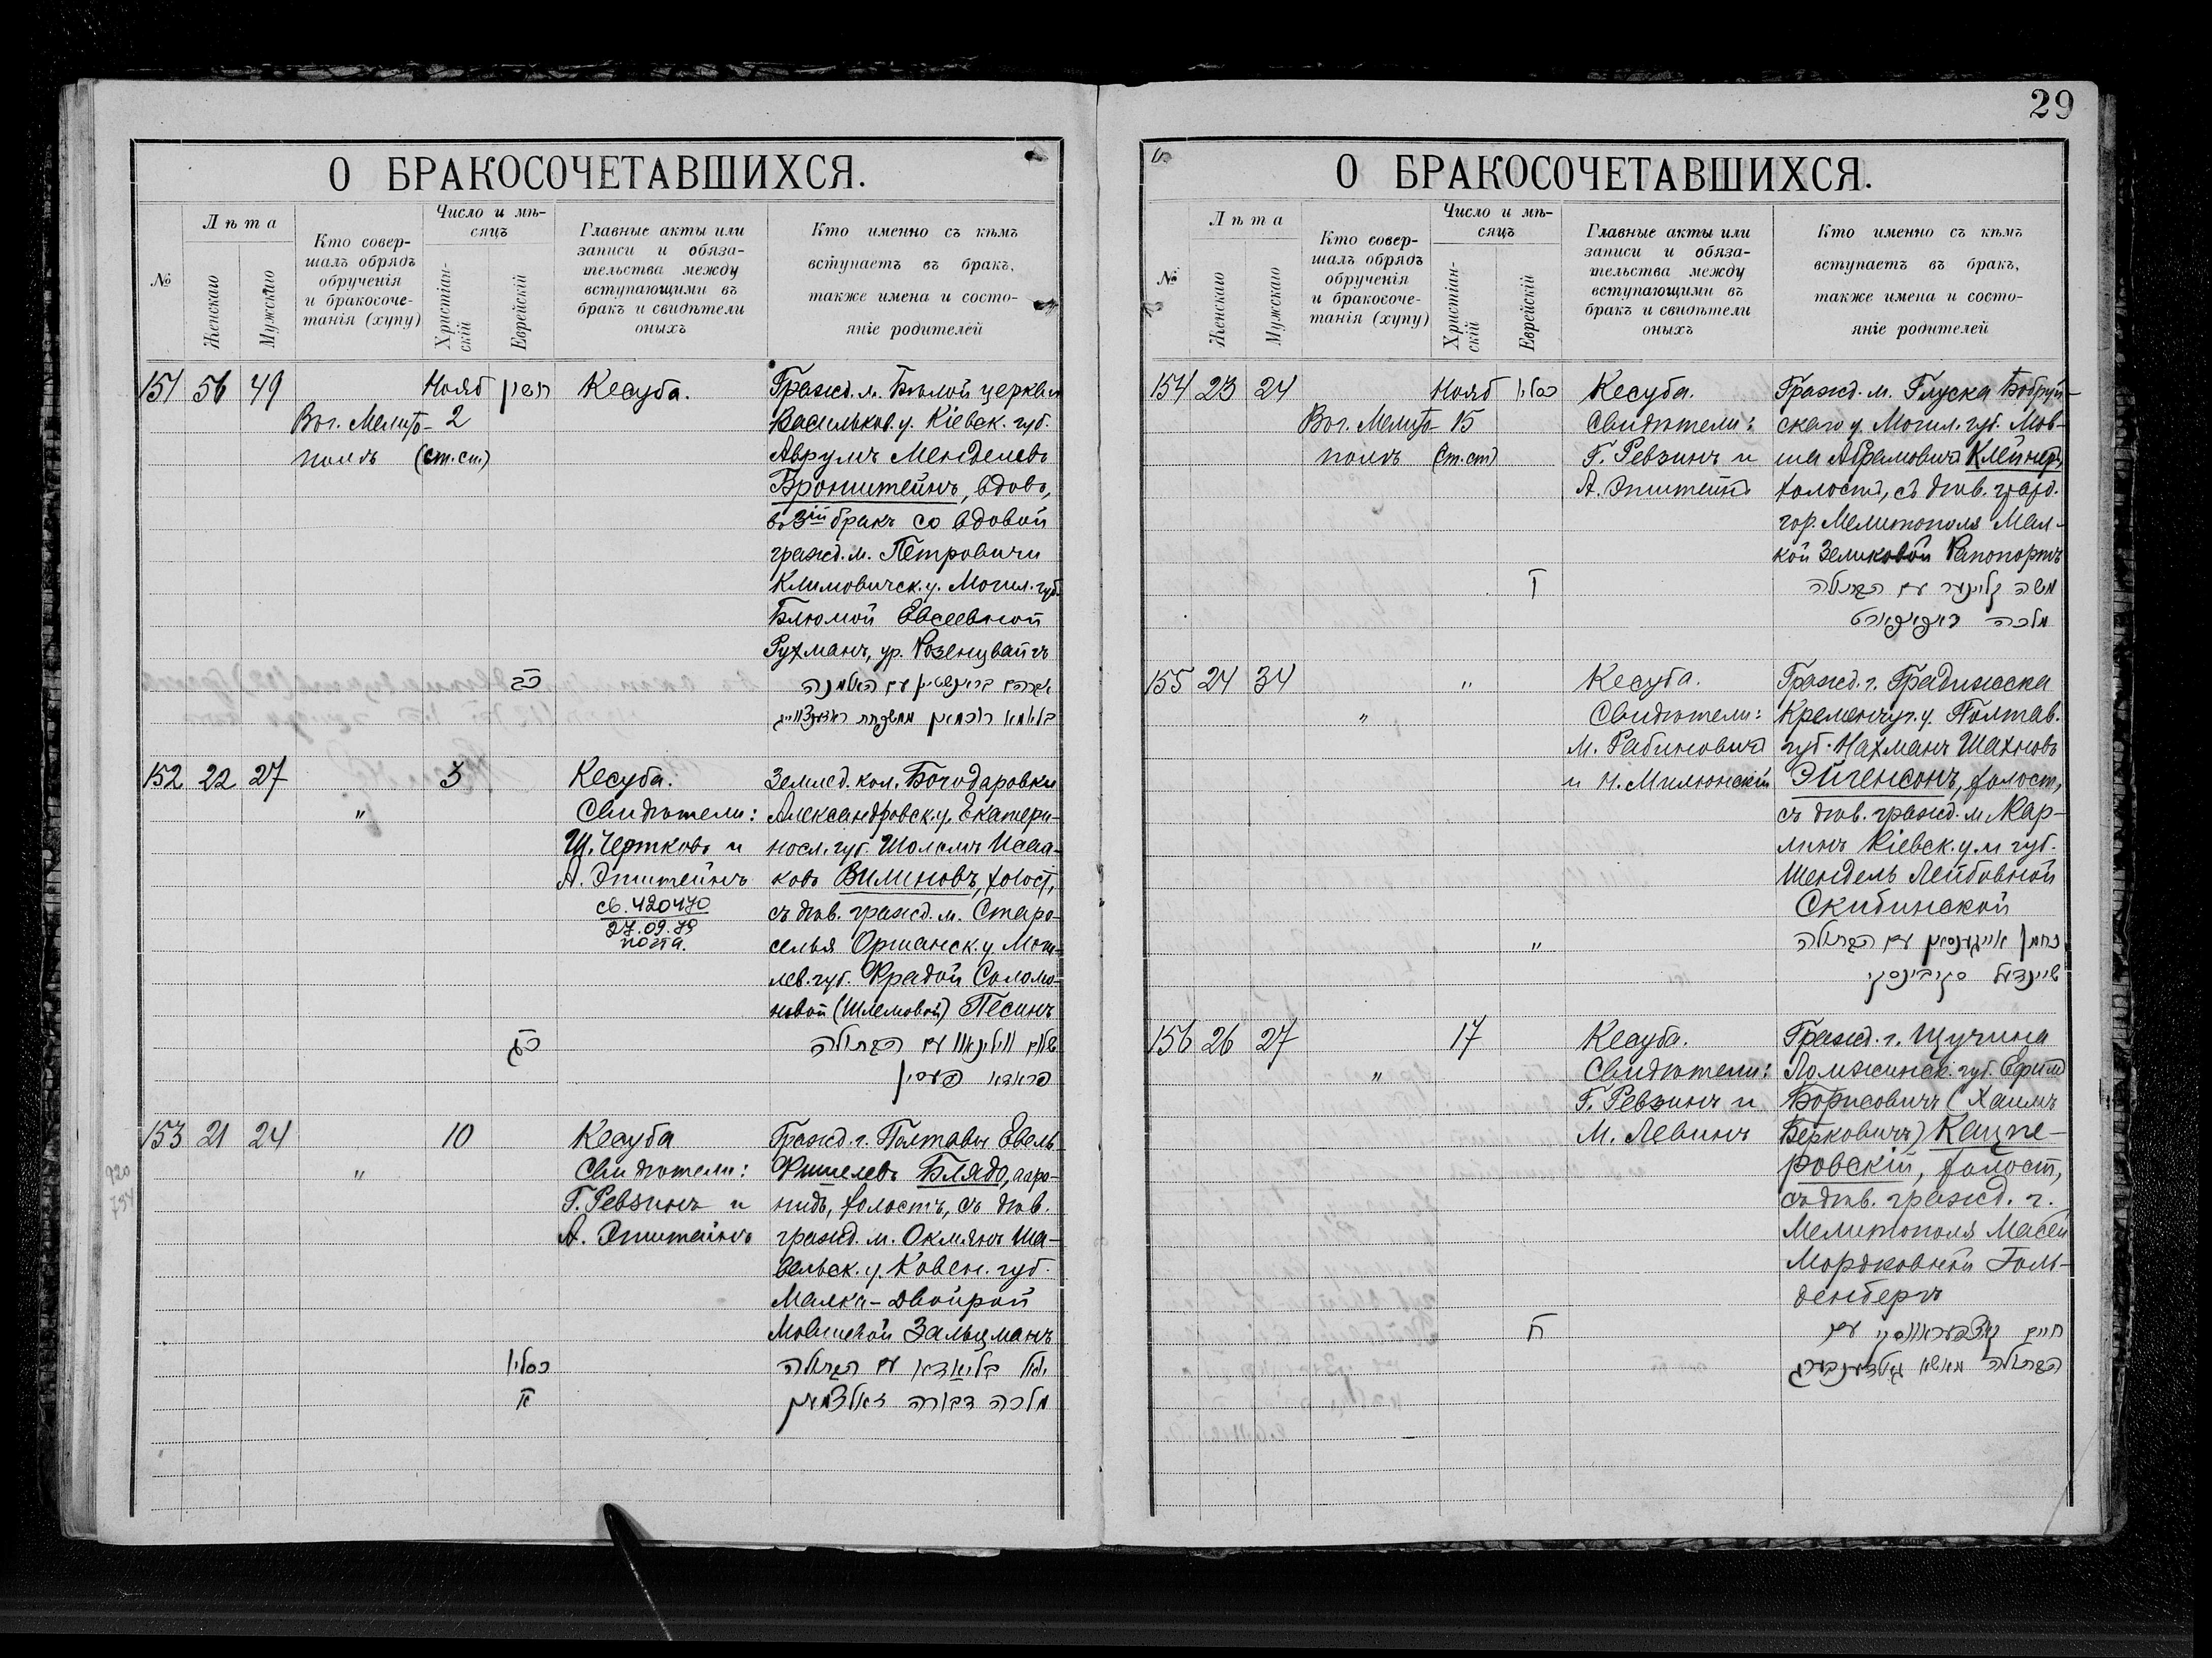 29
О БРАКОСОЧЕТАВШИХСЯ.
№
Лѣта
Женскаго
Мужскаго
Кто совер-
шалъ обрядъ
обрученія
и бракосоче-
танія (хупу)
Число и мѣ-
сяцъ
Христіан-
скій
Еврейскій
Главные акты или
записи и обяза-
тельства между
вступающими въ
бракъ и свидѣтели
оныхъ
Кто именно съ кѣмъ
вступаетъ въ бракъ,
также имена и состо-
яніе родителей
151 56 49
Вог. Мелито-
полѣ
Нояб
2
(ст. ст.)
חשון
כב
Кесуба.
Гражд. м. Бѣлой церкви
Васильков. у. Кіевск. губ.
Аврумъ Менделевъ
Бронштейнъ, вдовъ,
въ 3ій бракъ со вдовой
гражд. м. Петровичи
Климовичск. у. Могил. губ.
Блюмой Евсеевной
Рухманъ, ур. Розенцвайгъ
אברהם בראנשטיין עם האלמנה
152 22 27
"
3
כג
Кесуба.
Свидѣтели:
Ш. Чертковъ и
А. Эпштейнъ
св. 420470
27.09.79
почта.
Землед. кол. Богодаровки
Александровск. у. Екатери-
носл. губ. Шолемъ Исаа-
ковъ Вилиновъ, холост,
съ дѣв. гражд. м. Старо-
селья Оршанск. у. Моги-
лев. губ. Фрадой Соломо-
новой (Шлемовой) Песинъ
שלום ווילינאוו עם הבתולה
פראדא פעסין
153 21 24
"
10
כסליו
א
Кесуба
Свидѣтели:
Г. Ревзинъ и
А. Эпштейнъ
Гражд. г. Полтавы Евель
Фишелевъ Блядо,ааро-
нидъ, холостъ, съ дѣв.
гражд. м. Окмянъ Ша-
вельск. у. Ковен. губ.
Малка-Двойрой
Мовшевой Зальцманъ
יואל בליאדא עם הבתולה
מלכה דבורה זאלצמאן
920
754
О БРАКОСОЧЕТАВШИХСЯ.
№
Лѣта
Женскаго
Мужскаго
Кто совер-
шалъ обрядъ
обрученія
и бракосоче-
танія (хупу)
Число и мѣ-
сяцъ
Христіан-
скій
Еврейскій
Главные акты или
записи и обяза-
тельства между
вступающими въ
бракъ и свидѣтели
оныхъ
Кто именно съ кѣмъ
вступаетъ въ бракъ,
также имена и состо-
яніе родителей
154 23 24
Вог. Мелито-
полѣ
Нояб
15
(ст. ст)
כסליו
ו
Кесуба.
Свидѣтели:
Г. Ревзинъ и
А. Эпштейнъ
Гражд. м. Глуска Бобруй-
скаго у. Могил. губ. Мов-
ша Абрамовичъ Клейнеръ,
холостъ, съ дѣв. гражд.
гор. Мелитополя Мал-
кой Зеликовой Рапопортъ
משה קליינער עם הבתולה
מלכה ראפאפארט
155 24 34
"
"
"
Кесуба.
Свидѣтели:
М. Рабиновичъ
и Н. Милюнскій
Гражд. г. Градижска
Кременчуг. у. Полтав.
губ. Нахманъ Шахновъ
Эйгенсонъ, холост,
съ дѣв. гражд. м. Кар-
линъ Кіевск. у. и губ.
Шендель Лейбовной
Скибинской
נחמן אייגענסאן עם הבתולה
שיינדעל סקיבינסקי
156 26 27
"
17
ח
Кесуба.
Свидѣтели:
Г. Ревзинъ и
М. Левинъ
Гражд. г. Щучина
Ломжинск. губ. Ефимъ
Борисовичъ (Хаимъ
Берковичъ) Кацпе-
ровскій, холост,
съ дѣв. гражд. г.
Мелитополя Масей
Мордковной Голь-
денбергъ
חיים קאצפעראווסקי עם
הבתולה מאשא גאלדענבערג